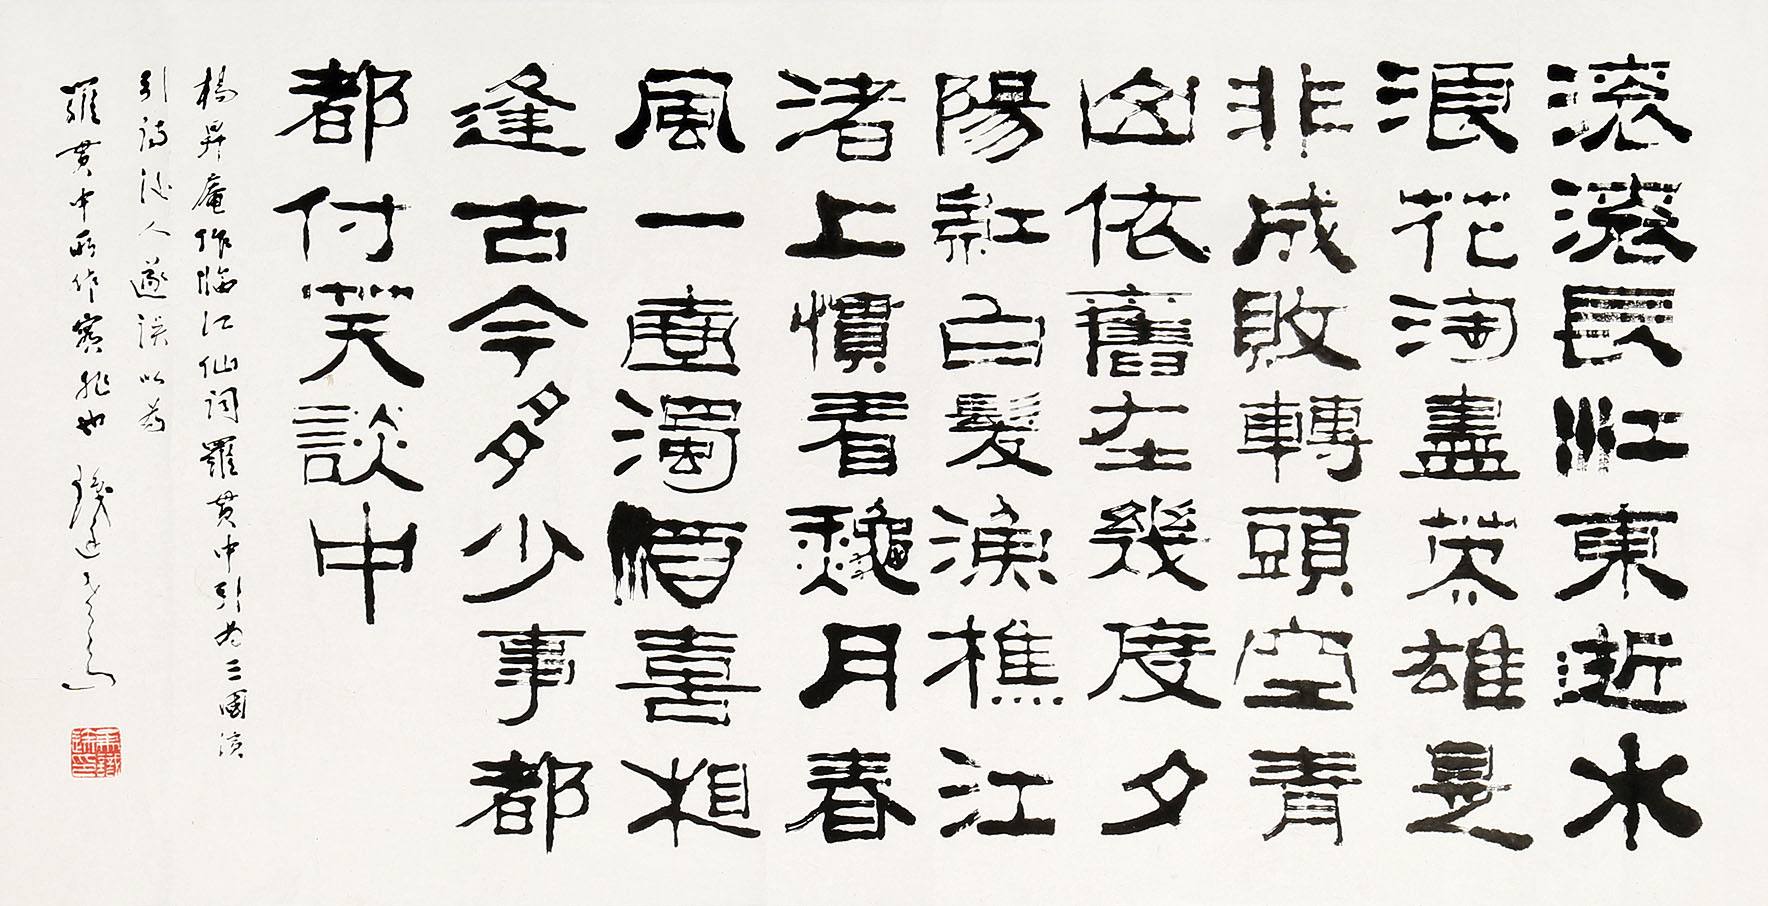 滾滾長江東逝水
浪花淘盡英雄是
非成敗轉頭空青
山依舊在幾度夕
陽紅白髮漁樵江
渚上慣看龝月春
風一壺濁酒喜相
逢古今多少事都
都付笑談中
楊昇庵作臨江仙詞羅貫中引為三國演
引詩後人遂誤以為
羅貫中所作實非也